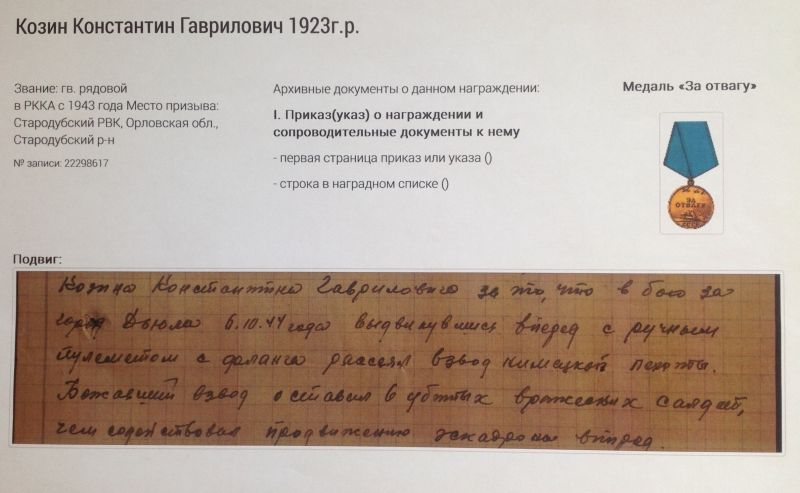 Козин Константин Гаврилович 1923г.р.
Звание: гв. рядовой
в РККА с 1943 года Место призыва:
Стародубский РВК, Орловская обл.,
Стародубский р-н
№ записи: 22298617
Архивные документы о данном награждении:
I. Приказ(указ) о награждении и
сопроводительные документы к нему
- первая страница приказ или указа ()
- строка в наградном списке ()
Медаль «За отвагу»
ЗА
ОТВАГУ
Подвиг:
Козина Константина Гавриловича за то, что в бою за
город Дьюла 6.10.44 года выдвинувшись вперед с ручным
пулеметом с фланга рассеял взвод немецкой пехоты.
Бежавший взвод оставил 6 убитых вражеских солдат,
чем содействовал продвижению эскадрона вперед.